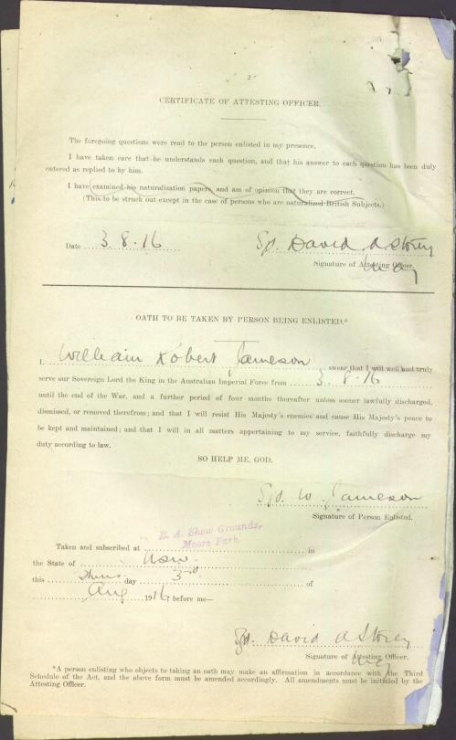 2
CERTIFICATE OF ATTESTING OFFICER.
The foregoing questions were read to the person enlisted in my presence.
I have taken care that he understands each question, and that his answer to each question has been duly
entered as replied to by him.
I have examined his naturalization papers and am of opinion that they are correct.
(This to be struck out except in the case of persons who are naturalized British Subjects.)
Date 3.8.16 Sgd. David A Storey
Signature of Attesting Officer.
OATH TO BE TAKEN BY PERSON BEING ENLISTED.*
I, William Robert Jameson swear that I will well and truly
serve our Sovereign Lord the King in the Australian Imperial Force from 3.8.16
until the end of the War, and a further period of four months thereafter unless sooner lawfully discharged,
dismissed, or removed therefrom; and that I will resist His Majesty's enemies and cause His Majesty's peace to
be kept and maintained; and that I will in all matters appertaining to my service, faithfully discharge my
duty according to law.
SO HELP ME, GOD.
Sgd. W. Jameson
Signature of Person Enlisted.
R. A. Show Grounds,
Moore Park
Taken and subscribed at in
the State of NSW
this Thurs day 3rd of
Aug 1916 before me—
Sgd. David A Storey
Signature of Attesting Officer.
*A person enlisting who objects to taking an oath may make an affirmation in accordance with the Third
Schedule of the Act, and the above form must be amended accordingly. All amendments must be initialed by the
Attesting Officer.